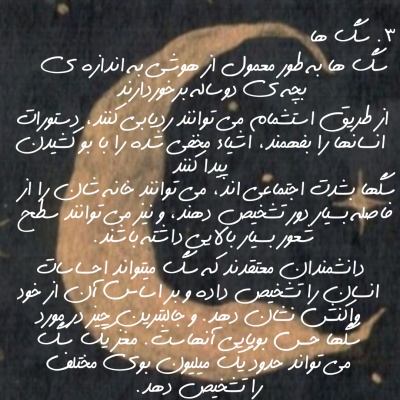 ۳. سگ ها
سگ ها به طور معمول از هوشی به اندازه ی
بچه ی دوساله برخوردارند
از طریق استشمام می توانند ردیابی کنند، دستورات
انسانها را بفهمند، اشیاء مخفی شده را با بو کشیدن
پیدا کنند
سگها بشدت اجتماعی اند، می توانند خانه شان را از
فاصله بسیار دور تشخیص دهند، و نیز می توانند سطح
شعور بسیار بالایی داشته باشند.
دانشمندان معتقدند که سگ میتواند احساسات
انسان را تشخیص داده و بر اساس آن از خود
واکنش نشان دهد. و جالبترین چیز در مورد
سگها حس بویایی آنهاست. مغز یک سگ
می تواند حدود یک میلیون بوی مختلف
را تشخیص دهد.